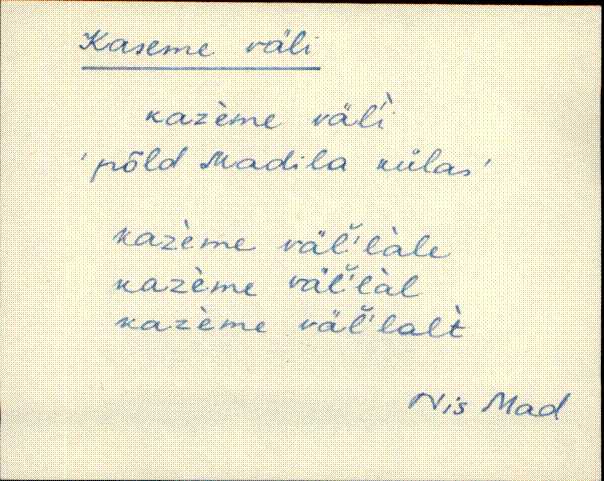 Kaseme väli
kazème väĺì
'põld Madila külas'
kazème väľ'làle
kazème väľ'làl
kazème väľ'lalt̀
Nis Mad